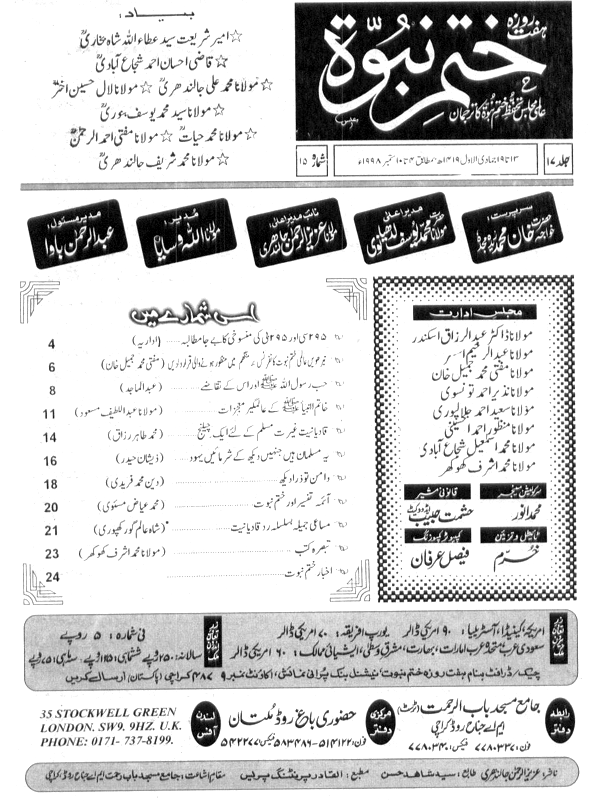 ہفت روزہ
ختم نبوّۃ
عالمی مجلس تحفظ ختم نبوۃ کا ترجمان
بیاد:
☆ امیر شریعت سید عطاء اللہ شاہ بخاریؒ
☆ قاضی احسان احمد شجاع آبادیؒ
☆ مولانا محمد علی جالندھریؒ ☆ مولانا لال حسین اخترؒ
☆ مولانا سید محمد یوسف بنوریؒ
☆ مولانا محمد حیاتؒ ☆ مولانا مفتی احمد الرحمٰنؒ
☆ مولانا محمد شریف جالندھریؒ
جلد ۱۷
۱۳ تا ۱۹ جمادی الاول ۱۴۱۹ھ مطابق ۴ تا ۱۰ ستمبر ۱۹۹۸ء
شمارہ ۱۵
سرپرست:
حضرت خواجہ خان محمد
مدیر اعلیٰ
حضرت مولانا محمد یوسف لدھیانوی
نائب مدیر اعلیٰ
مولانا عزیز الرحمٰن جالندھری
مدیر:
مولانا اللہ وسایا
مدیر مسئول:
عبدالرحمٰن باوا
مجلس ادارت
مولانا ڈاکٹر عبدالرزاق اسکندر
مولانا عبدالرحیم اشعر
مولانا مفتی محمد جمیل خان
مولانا نذیر احمد تونسوی
مولانا سعید احمد جلالپوری
مولانا منظور احمد الحسینی
مولانا محمد اسمٰعیل شجاع آبادی
مولانا محمد اشرف کھوکھر
سرکولیشن منیجر
محمد انور
قانونی مشیر
حشمت حبیب ایڈووکیٹ
ٹائٹل و تزئین
خرّم
کمپیوٹر کمپوزنگ
فیصل عرفان
اس شمارے میں
۲۹۵ سی اور ۲۹۵ بی کی منسوخی کا بے جا مطالبہ (اداریہ) 4
تیرھویں عالمی ختم نبوت کانفرنس برمنگھم میں منظور ہونے والی قراردادیں (مفتی محمد جمیل خان) 6
حب رسول اللہ ﷺ اور اس کے تقاضے (عبدالماجد) 8
خاتم الانبیاء ﷺ کے عالمگیر معجزات (مولانا عبداللطیف مسعود) 11
قادیانیت غیرت مسلم کے لئے ایک چیلنج (محمد طاہر رزاق) 14
یہ مسلمان ہیں جنہیں دیکھ کے شرمائیں یہود (ذیشان حیدر) 16
دامن تو ذرا دیکھ (دین محمد فریدی) 18
آئمہ تفسیر اور ختم نبوت (محمد عیاض مسئوی) 20
مساعی جمیلہ بسلسلہ رد قادیانیت (شاہ عالم گورکھپوری) 21
تبصرہ کتب (مولانا محمد اشرف کھوکھر) 23
اخبار ختم نبوت 24
زر تعاون بیرون ملک
امریکہ، کینیڈا، آسٹریلیا: ۹۰ امریکی ڈالر یورپ، افریقہ: ۷۰ امریکی ڈالر
سعودی عرب، متحدہ عرب امارات، بھارت، مشرق وسطیٰ، ایشیائی ممالک: ۶۰ امریکی ڈالر
زر تعاون اندرون ملک
فی شمارہ: ۵ روپے
سالانہ: ۲۵۰ روپے ششماہی: ۱۲۵ روپے سہ ماہی: ۷۵ روپے
چیک/ ڈرافٹ بنام ہفت روزہ ختم نبوت، نیشنل بنک پرانی نمائش، اکاؤنٹ نمبر ۹-۴۸۷ کراچی (پاکستان) ارسال کریں
رابطہ دفتر
جامع مسجد باب الرحمت (ٹرسٹ)
ایم اے جناح روڈ کراچی
فون: ۷۷۸۰۳۳۷ فیکس: ۷۷۸۰۳۴۰
مرکزی دفتر
حضوری باغ روڈ ملتان
فون: ۵۱۴۱۲۲-۵۸۳۴۸۶ فیکس: ۵۴۲۲۷۷
لندن آفس
35 STOCKWELL GREEN
LONDON. SW9. 9HZ. U.K.
PHONE: 0171- 737-8199.
ناشر: عزیز الرحمٰن جالندھری طابع: سید شاہد حسن مطبع: القادر پرنٹنگ پریس مقام اشاعت: جامع مسجد باب رحمت ایم اے جناح روڈ، کراچی